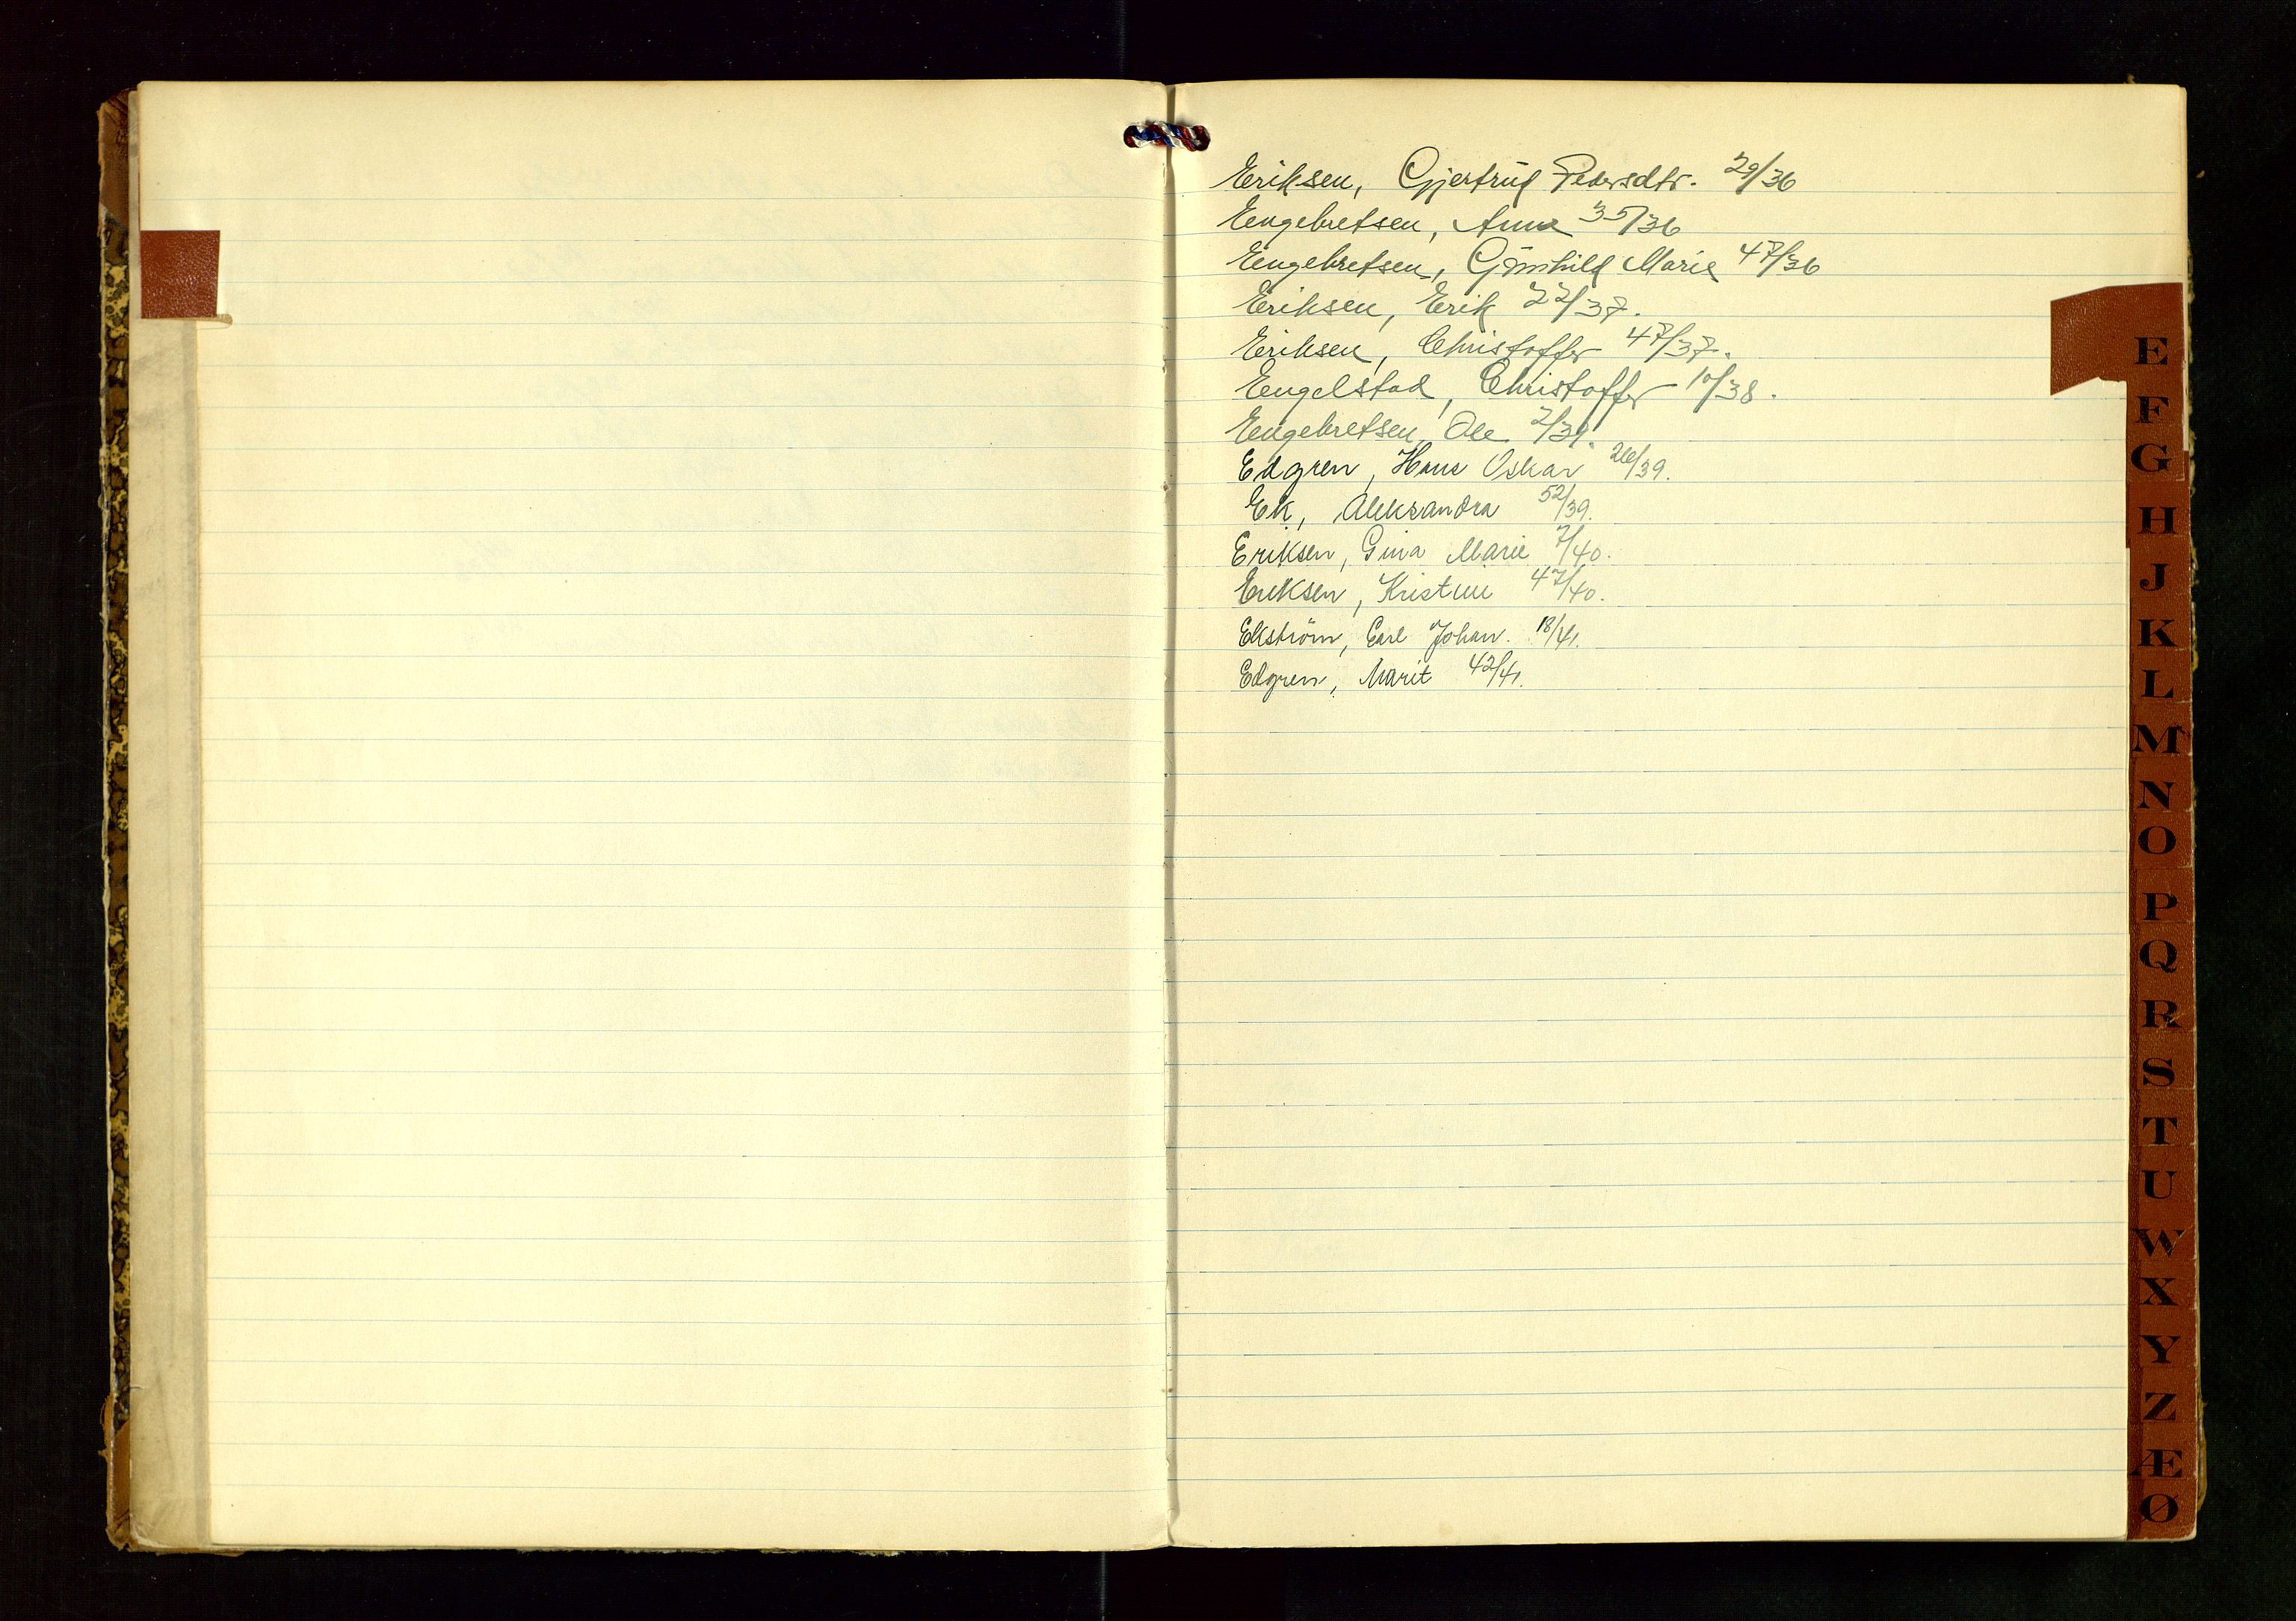 Eriksen, Gjertrud Pedersdtr. 29/36
Engebretsen, Anna 35/36
Engebretsen, Gunhild Marie 47/36
Eriksen, Erik 22/37.
Eriksen, Christoffer 47/37.
Engelstad, Christoffer 10/38.
Engebretsen, Ole 2/39.
Edgren, Hans Oskar 26/39.
Ek, Aleksandra 52/39.
Eriksen, Gina Marie 7/40.
Eriksen, Kristine 47/40.
Ekström, Carl Johan. 18/41.
Edgren, Marit 42/41.
E
F
G
H
J
K
L
M
N
O
P
Q
R
S
T
U
W
X
Y
Z
Æ
Ø